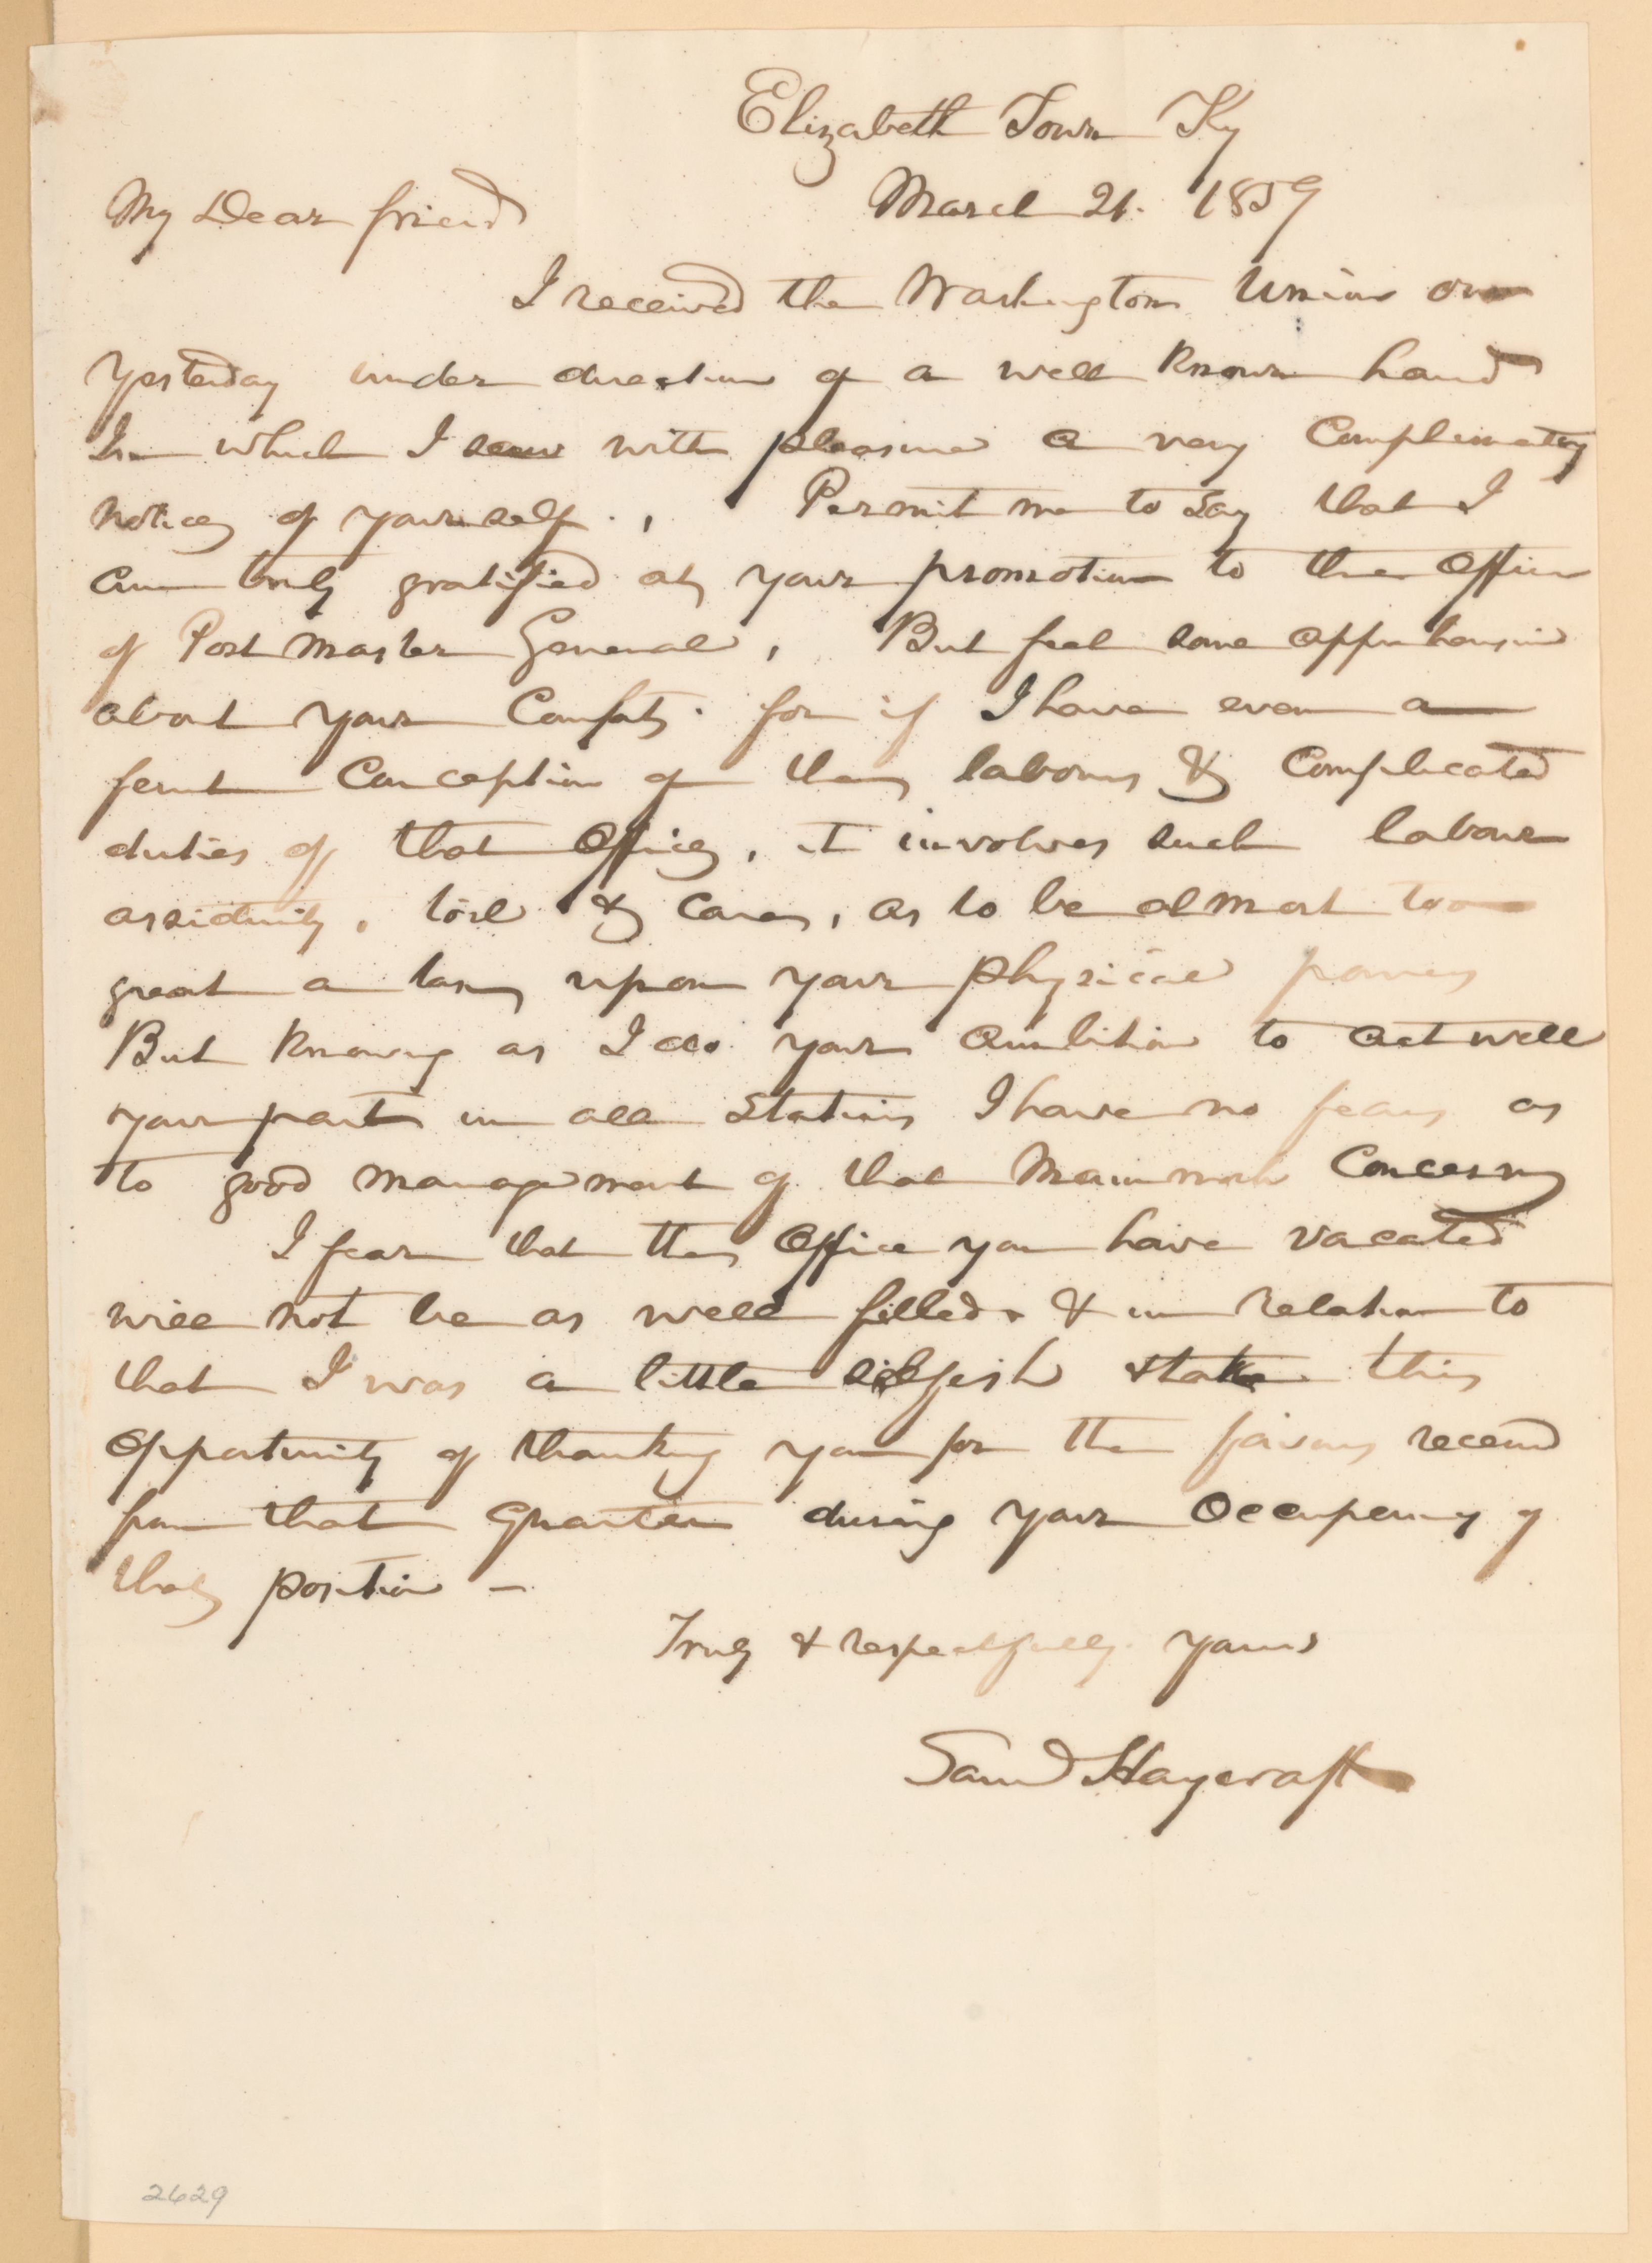 Elizabeth Town Ky
March 21. 1859
My Dear friend
I received the Washington Union on
yesterday under direction of a well known hand
In which I saw with pleasure a very Complimentary
notice of yourself. , Permit me to say that I
am truly gratified at your promotion to the office
of Post Master General, But feel some apprehension
about your Comfort. for if I have even a
feint Conception of the labours & Complicated
duties of that office, it involves such labour
assiduity, toil & Care, as to be almost too
great a tax upon your physical powers
But Knowing as I do your Ambition to act well
your part in all Stations I have no fears as
to good management of that Mammoth Concern
I fear that the office you have vacated
will not be as well filled. & in relation to
that I was a little selfish & take this
opportunity of thanking you for the favours received
from that Quarter during your Occupancy of
that position –
Truly & respectfully yours
Saml Haycraft
2629